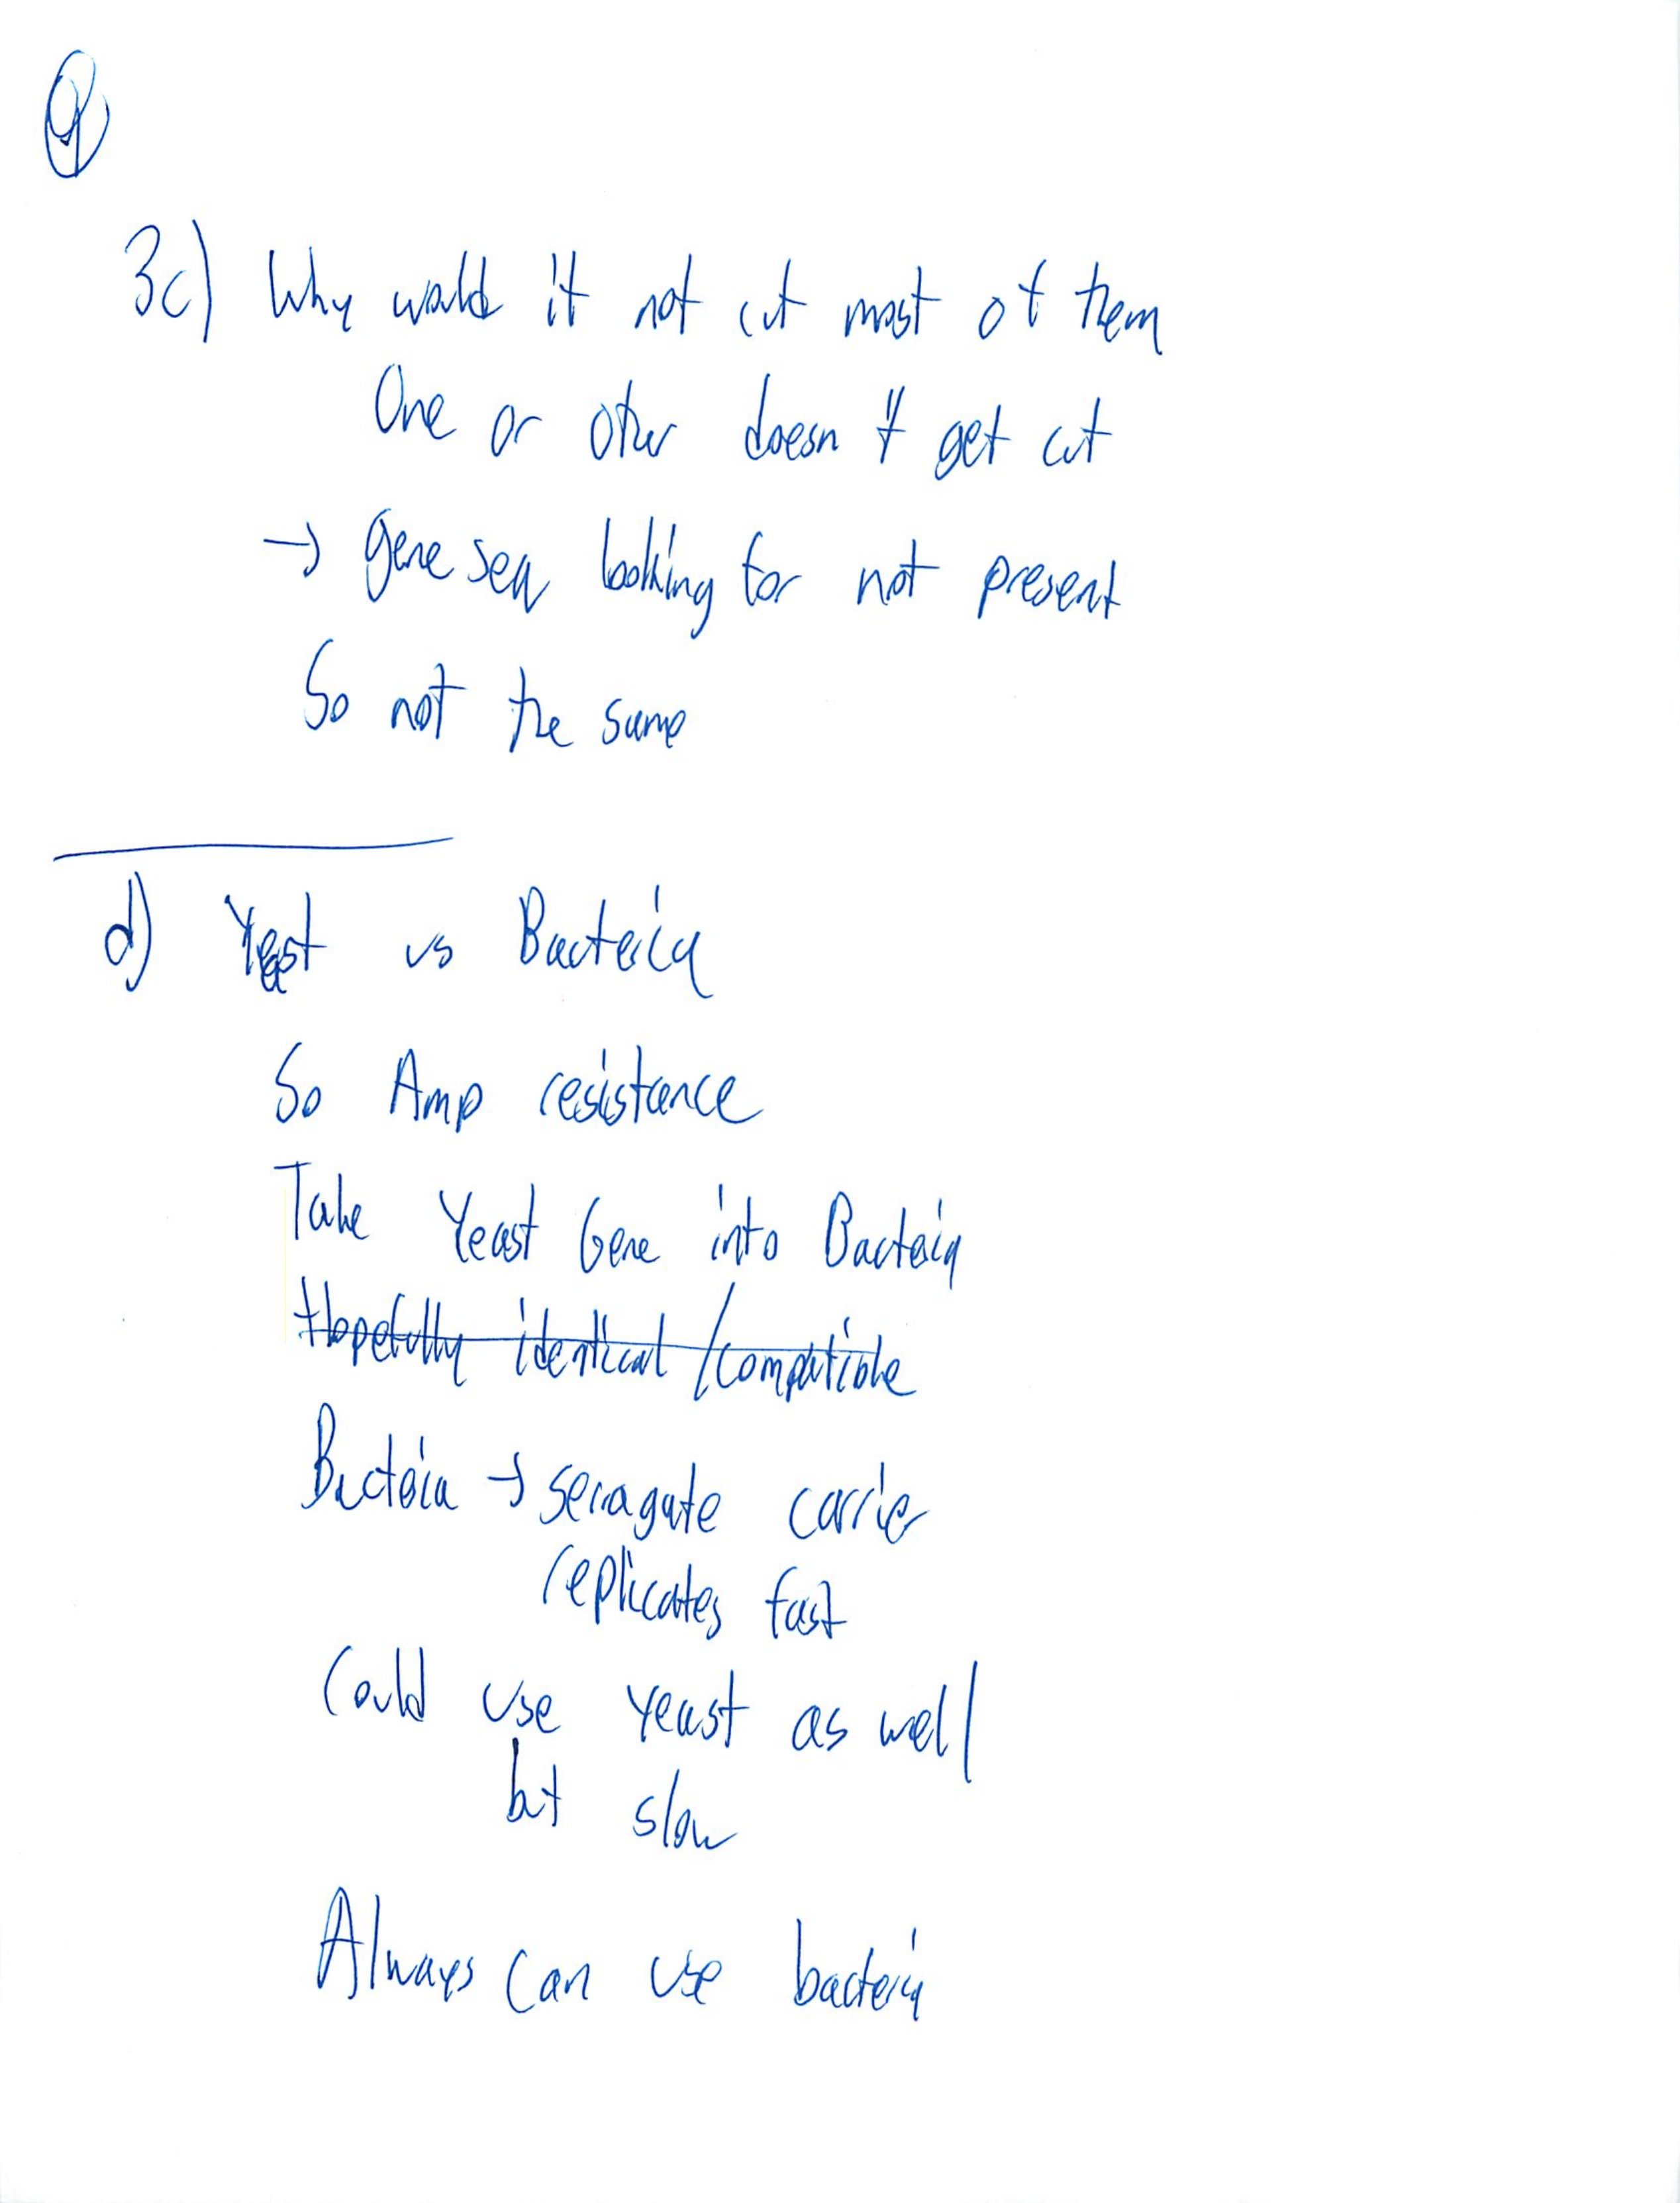 9
3c) Why would it not cut most of them
One or other doesn't get cut
→ gene seq looking for not present
So not the same
d) Yeast vs Bacteria
So Amp resistance
Take Yeast Gene into Bacteria
Hopefully identical / compatible
Bacteria → seragate carrier
replicates fast
Could use yeast as well
but slow
Always can use bacteria